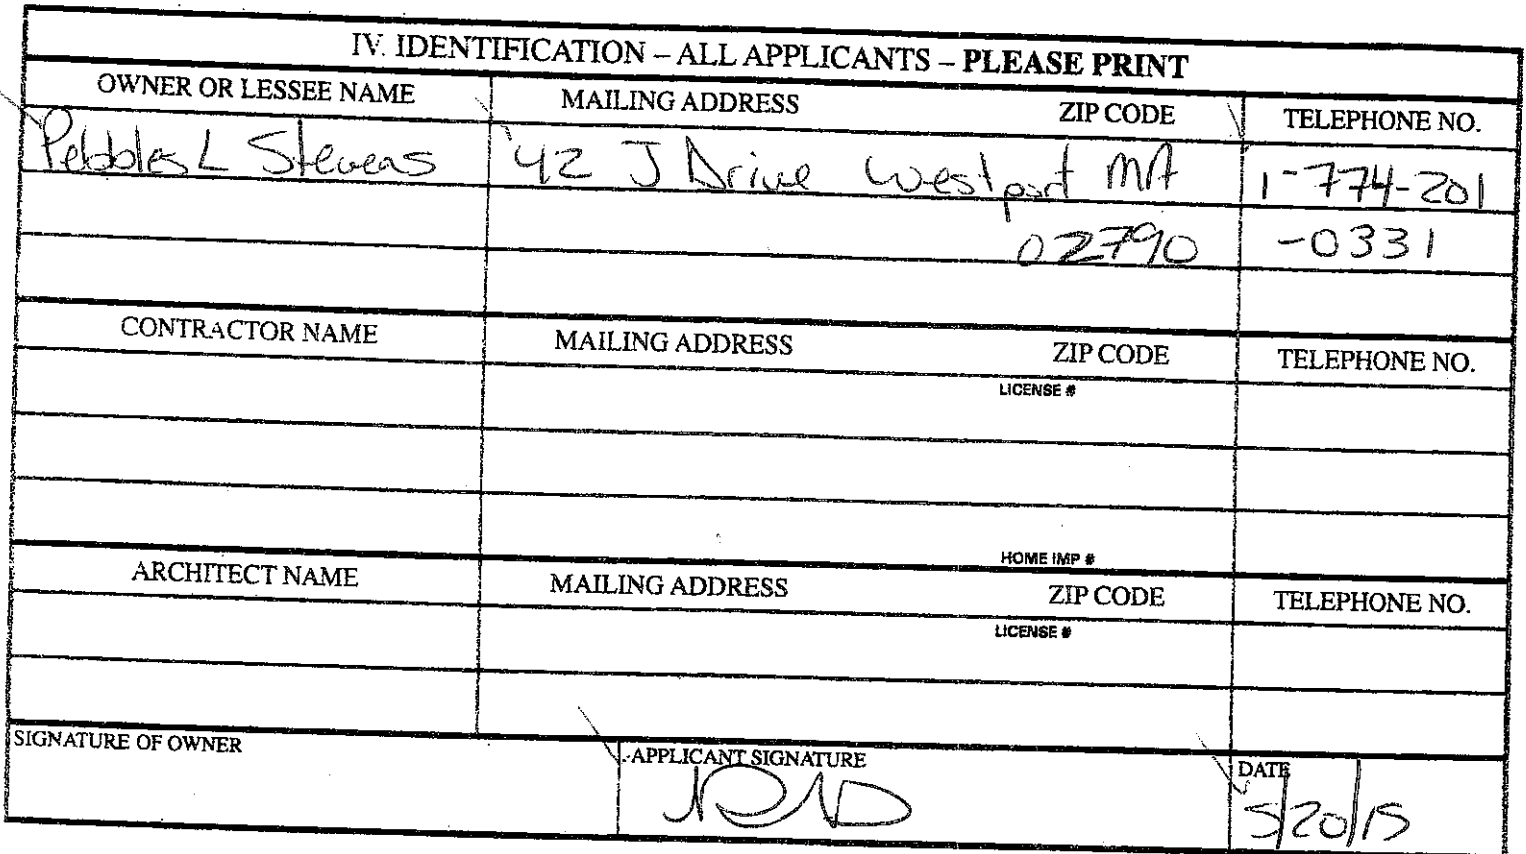 IV. IDENTIFICATION – ALL APPLICANTS – PLEASE PRINT
OWNER OR LESSEE NAME MAILING ADDRESS ZIP CODE TELEPHONE NO.
Pebbles L Stevens 42 J Drive Westport MA 1-774-201
02790 -0331
CONTRACTOR NAME MAILING ADDRESS ZIP CODE TELEPHONE NO.
LICENSE #
HOME IMP #
ARCHITECT NAME MAILING ADDRESS ZIP CODE TELEPHONE NO.
LICENSE #
SIGNATURE OF OWNER APPLICANT SIGNATURE DATE
5/20/15